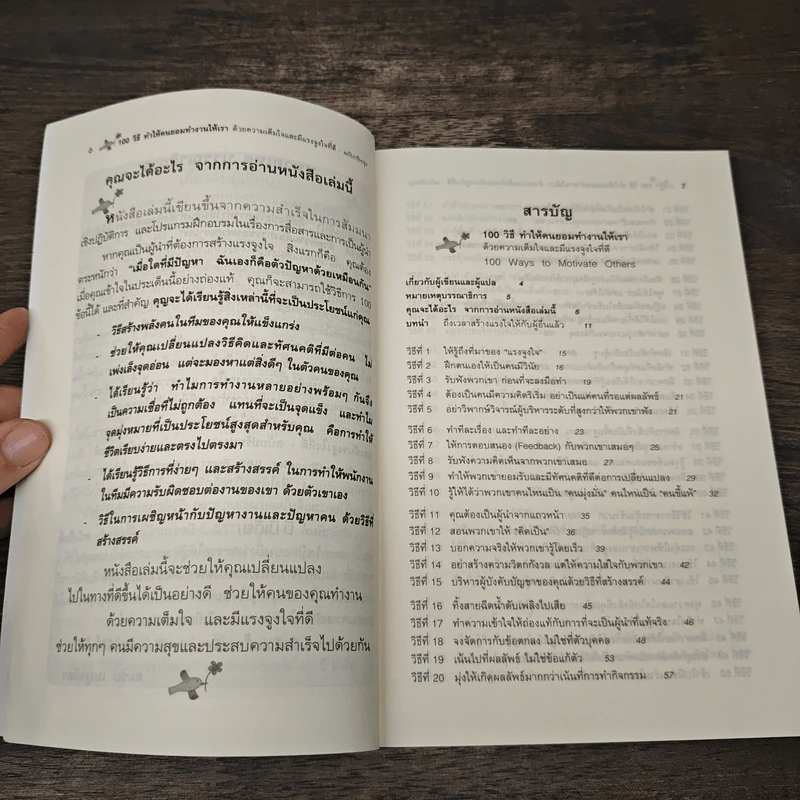 6 100 วิธี ทำให้คนยอมทำงานให้เรา ด้วยความเต็มใจและมีแรงจูงใจที่ดี
คุณจะได้อะไร จากการอ่านหนังสือเล่มนี้
หนังสือเล่มนี้เขียนขึ้นจากความสำเร็จในการสัมมนา
เชิงปฏิบัติการ และโปรแกรมฝึกอบรมในเรื่องการสื่อสารและการเป็นผู้นำ
หากคุณเป็นผู้นำที่ต้องการสร้างแรงจูงใจ สิ่งแรกก็คือ คุณต้อง
ตระหนักว่า "เมื่อใดที่มีปัญหา ฉันเองก็คือตัวปัญหาด้วยเหมือนกัน"
เมื่อคุณเข้าใจในประเด็นนี้อย่างถ่องแท้ คุณก็จะสามารถใช้วิธีการ 100
ข้อนี้ได้ และที่สำคัญ คุณจะได้เรียนรู้สิ่งเหล่านี้ที่จะเป็นประโยชน์แก่คุณ
- วิธีสร้างพลังคนในทีมของคุณให้แข็งแกร่ง
- ช่วยให้คุณเปลี่ยนแปลงวิธีคิดและทัศนคติที่มีต่อคน ไม่
เพ่งเล็งจุดอ่อน แต่จะมองหาแต่สิ่งดีๆ ในตัวคนของคุณ
- ได้เรียนรู้ว่า ทำไมการทำงานหลายอย่างพร้อมๆ กันจึง
เป็นความเชื่อที่ไม่ถูกต้อง แทนที่จะเป็นจุดแข็ง และทำไม
จุดมุ่งหมายที่เป็นประโยชน์สูงสุดสำหรับคุณ คือการทำให้
ชีวิตเรียบง่ายและตรงไปตรงมา
- ได้เรียนรู้วิธีการที่ง่ายๆ และสร้างสรรค์ ในการทำให้พนักงาน
ในทีมมีความรับผิดชอบต่องานของเขา ด้วยตัวเขาเอง
- วิธีในการเผชิญหน้ากับปัญหางานและปัญหาคน ด้วยวิธีที่
สร้างสรรค์
หนังสือเล่มนี้จะช่วยให้คุณเปลี่ยนแปลง
ไปในทางที่ดีขึ้นได้เป็นอย่างดี ช่วยให้คนของคุณทำงาน
ด้วยความเต็มใจ และมีแรงจูงใจที่ดี
ช่วยให้ทุกๆ คนมีความสุขและประสบความสำเร็จไปด้วยกัน
7
สารบัญ
100 วิธี ทำให้คนยอมทำงานให้เรา
ด้วยความเต็มใจและมีแรงจูงใจที่ดี
100 Ways to Motivate Others
เกี่ยวกับผู้เขียนและผู้แปล 4
หมายเหตุบรรณาธิการ 5
คุณจะได้อะไร จากการอ่านหนังสือเล่มนี้ 6
บทนำ ถึงเวลาสร้างแรงใจให้กับผู้อื่นแล้ว 11
วิธีที่ 1 ให้รู้ถึงที่มาของ "แรงจูงใจ" 15
วิธีที่ 2 ฝึกตนเองให้เป็นคนมีวินัย 16
วิธีที่ 3 รับฟังพวกเขา ก่อนที่จะลงมือทำ 19
วิธีที่ 4 ต้องเป็นคนมีความคิดริเริ่ม อย่าเป็นแค่คนที่รอแต่ผลลัพธ์ 21
วิธีที่ 5 อย่าวิพากษ์วิจารณ์ผู้บริหารระดับที่สูงกว่าให้พวกเขาฟัง 21
วิธีที่ 6 ทำทีละเรื่อง และทำทีละอย่าง 23
วิธีที่ 7 ให้การตอบสนอง (Feedback) กับพวกเขาเสมอๆ 25
วิธีที่ 8 รับฟังความคิดเห็นจากพวกเขาเสมอ 27
วิธีที่ 9 ทำให้พวกเขายอมรับและมีทัศนคติที่ดีต่อการเปลี่ยนแปลง 29
วิธีที่ 10 รู้ให้ได้ว่าพวกเขาคนไหนเป็น "คนมุ่งมั่น" คนไหนเป็น "คนขี้แพ้" 32
วิธีที่ 11 คุณต้องเป็นผู้นำจากแถวหน้า 35
วิธีที่ 12 สอนพวกเขาให้ "คิดเป็น" 36
วิธีที่ 13 บอกความจริงให้พวกเขารู้โดยเร็ว 39
วิธีที่ 14 อย่าสร้างความวิตกกังวล แต่ให้ความใส่ใจกับพวกเขา 42
วิธีที่ 15 บริหารผู้บังคับบัญชาของคุณด้วยวิธีที่สร้างสรรค์ 44
วิธีที่ 16 ทิ้งสายฉีดน้ำดับเพลิงไปเสีย 45
วิธีที่ 17 ทำความเข้าใจให้ถ่องแท้กับการที่จะเป็นผู้นำที่แท้จริง 46
วิธีที่ 18 จงจัดการกับข้อตกลง ไม่ใช่ที่ตัวบุคคล 48
วิธีที่ 19 เน้นไปที่ผลลัพธ์ ไม่ใช่ข้อแก้ตัว 53
วิธีที่ 20 มุ่งให้เกิดผลลัพธ์มากกว่าเน้นที่การทำกิจกรรม 57